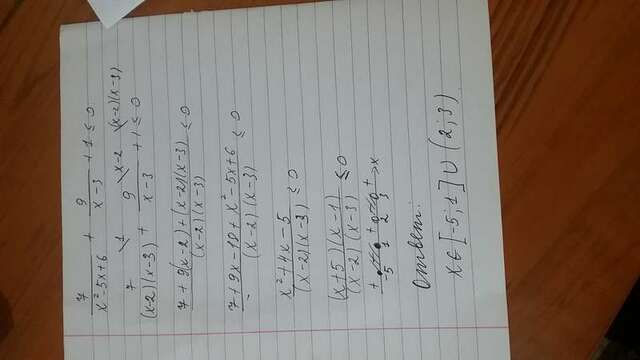 7/(x²-5x+6) + 9/(x-3) + 1 ≤ 0
7\1/((x-2)(x-3)) + 9\x-2/(x-3) + 1\(x-2)(x-3) ≤ 0
(7 + 9(x-2) + (x-2)(x-3))/((x-2)(x-3)) ≤ 0
(7 + 9x - 18 + x² - 5x + 6)/((x-2)(x-3)) ≤ 0
(x² + 4x - 5)/((x-2)(x-3)) ≤ 0
((x+5)(x-1))/((x-2)(x-3)) ≤ 0
+ + + x
-5 1 2 3
Ответ:
x ∈ [-5; 1] ∪ (2; 3)